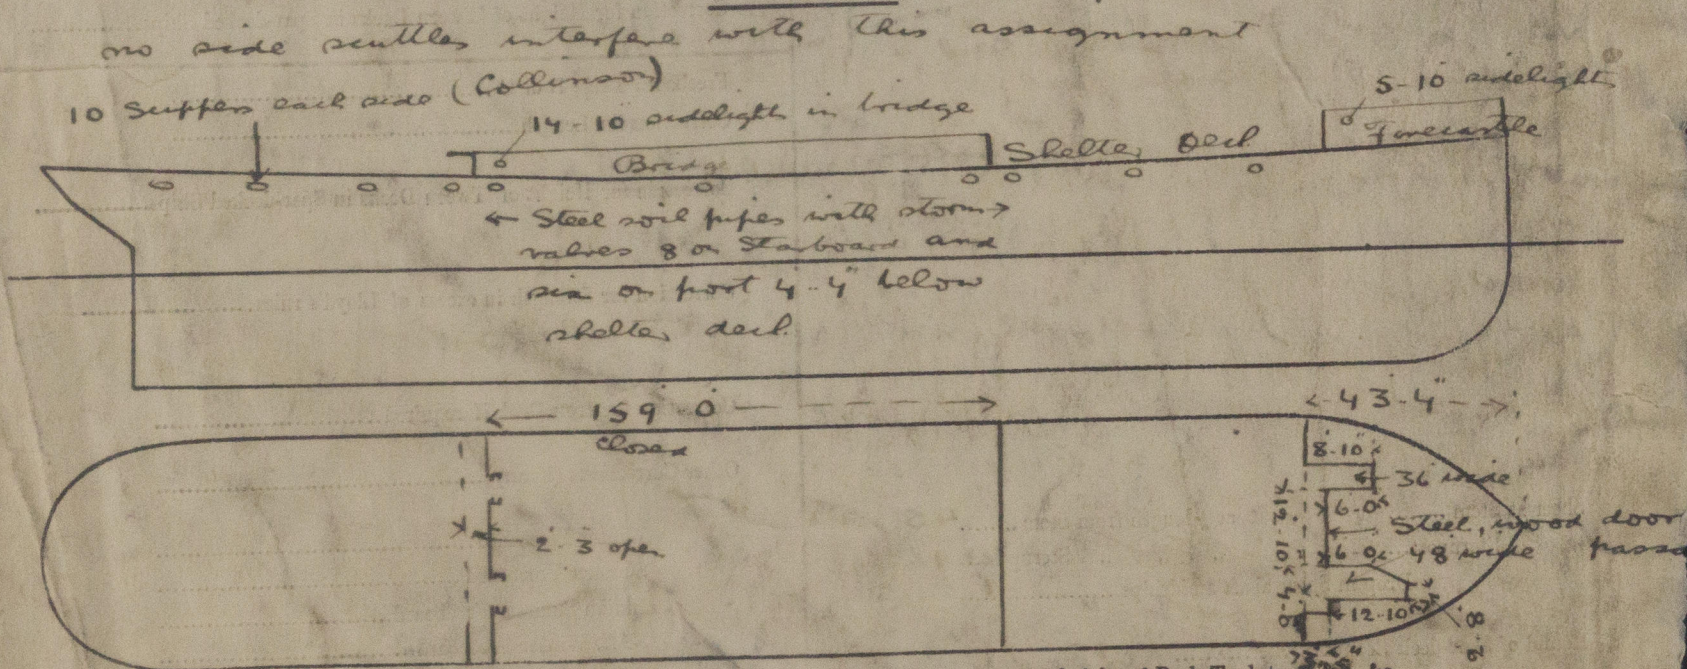 no side scuttles interfere with this assignment
10 Scuppers each side (Collinson)
14-10 sidelights in bridge
5-10 sidelights
Bridge
Shelter Deck
Forecastle
← Steel soil pipes with storm →
valves 8 on Starboard and
six on port 4-4" below
shelter deck.
159-0
Closed
43-4"
8-10"
36 wide
6-0
Steel, wood door
6-0 48 wide
2-3 open
12-10